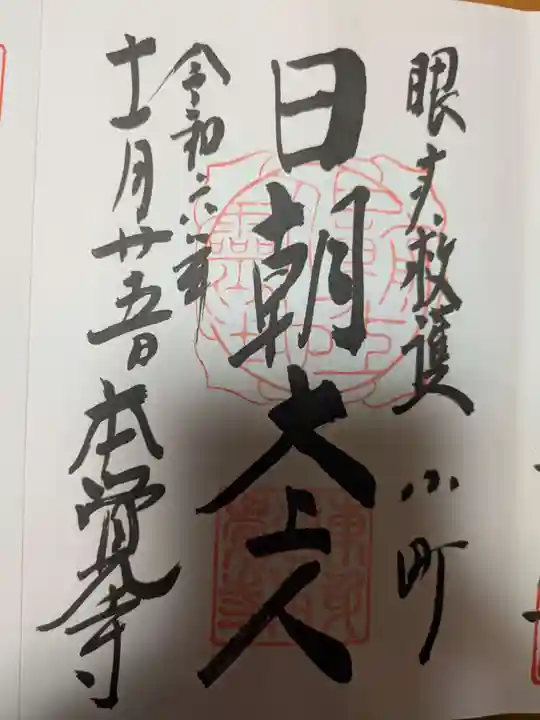 眼才救護 小町
日朝大上人
令和六年
十一月廿五日 本覚寺